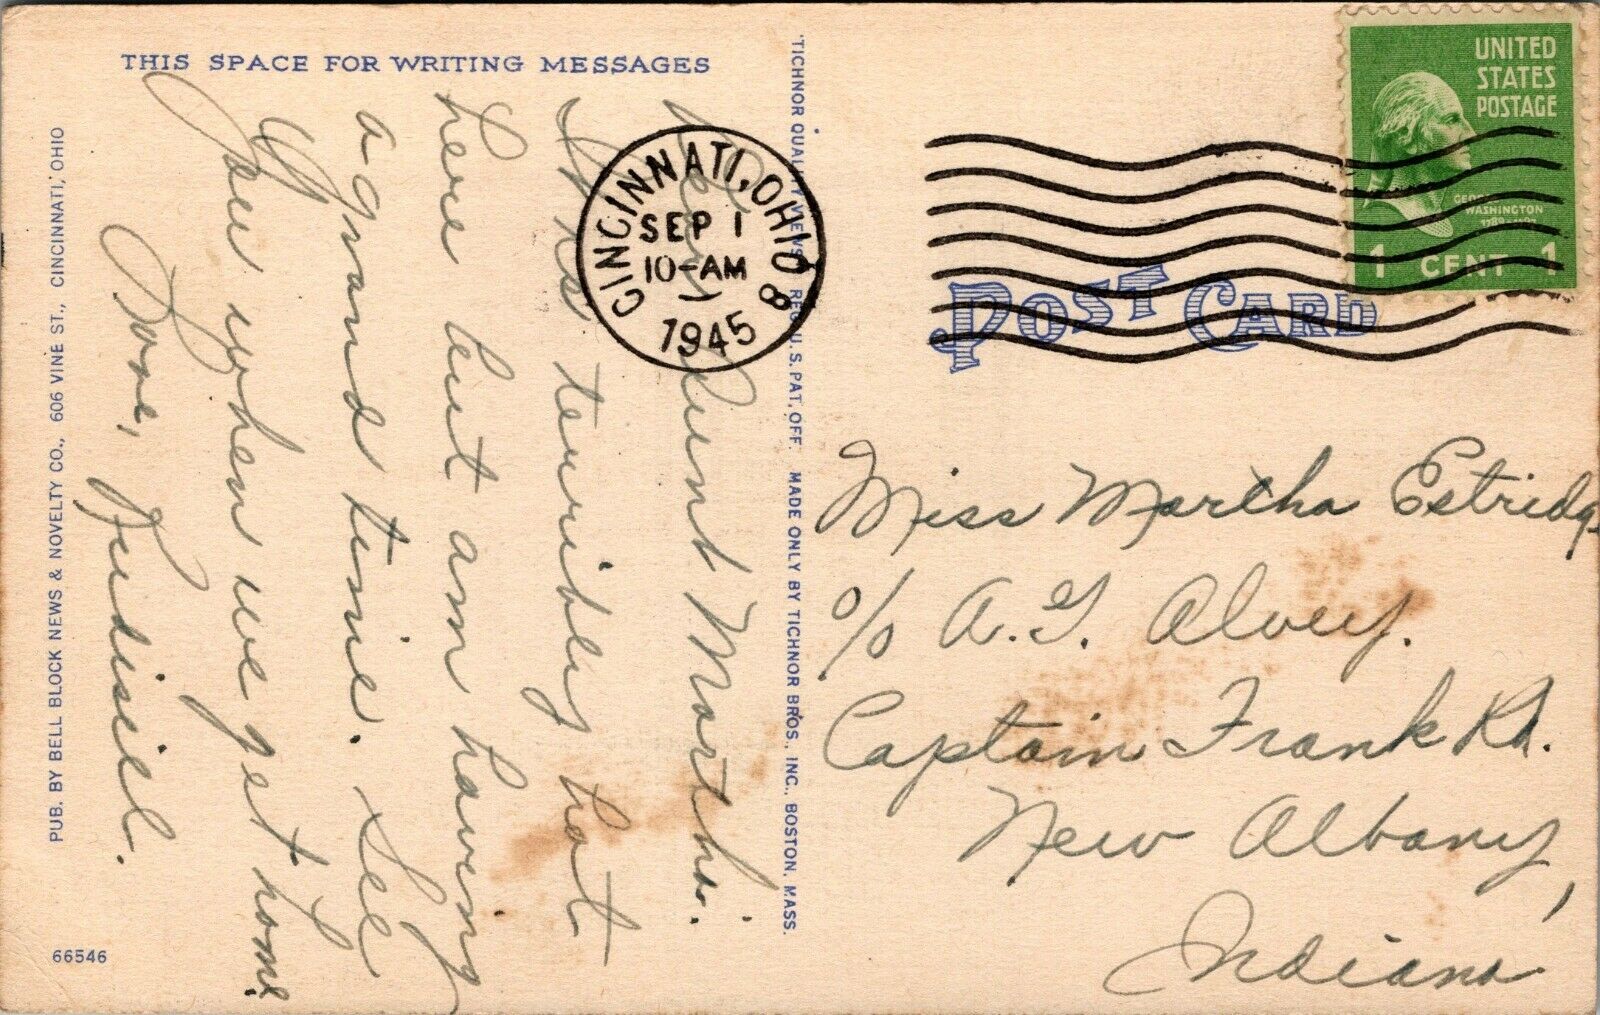 THIS SPACE FOR WRITING MESSAGES
Dear Aunt Martha.
It is terribly hot
here but am having
a grand time. See
you when we get home
Love,
PUB. BY BELL BLOCK NEWS & NOVELTY CO., 606 VINE ST., CINCINNATI, OHIO
66546
"TICHNOR QUALITY VIEWS," REG. U.S. PAT. OFF. MADE ONLY BY TICHNOR BROS., INC., BOSTON, MASS.
CINCINNATI, OHIO 8
SEP 1
10-AM
1945
UNITED
STATES
POSTAGE
GEORGE
WASHINGTON
1789-1797
1 CENT 1
POST CARD
Miss Martha Estridge
c/o A. G. Alvey.
Captain Frank Rd.
New Albany,
Indiana